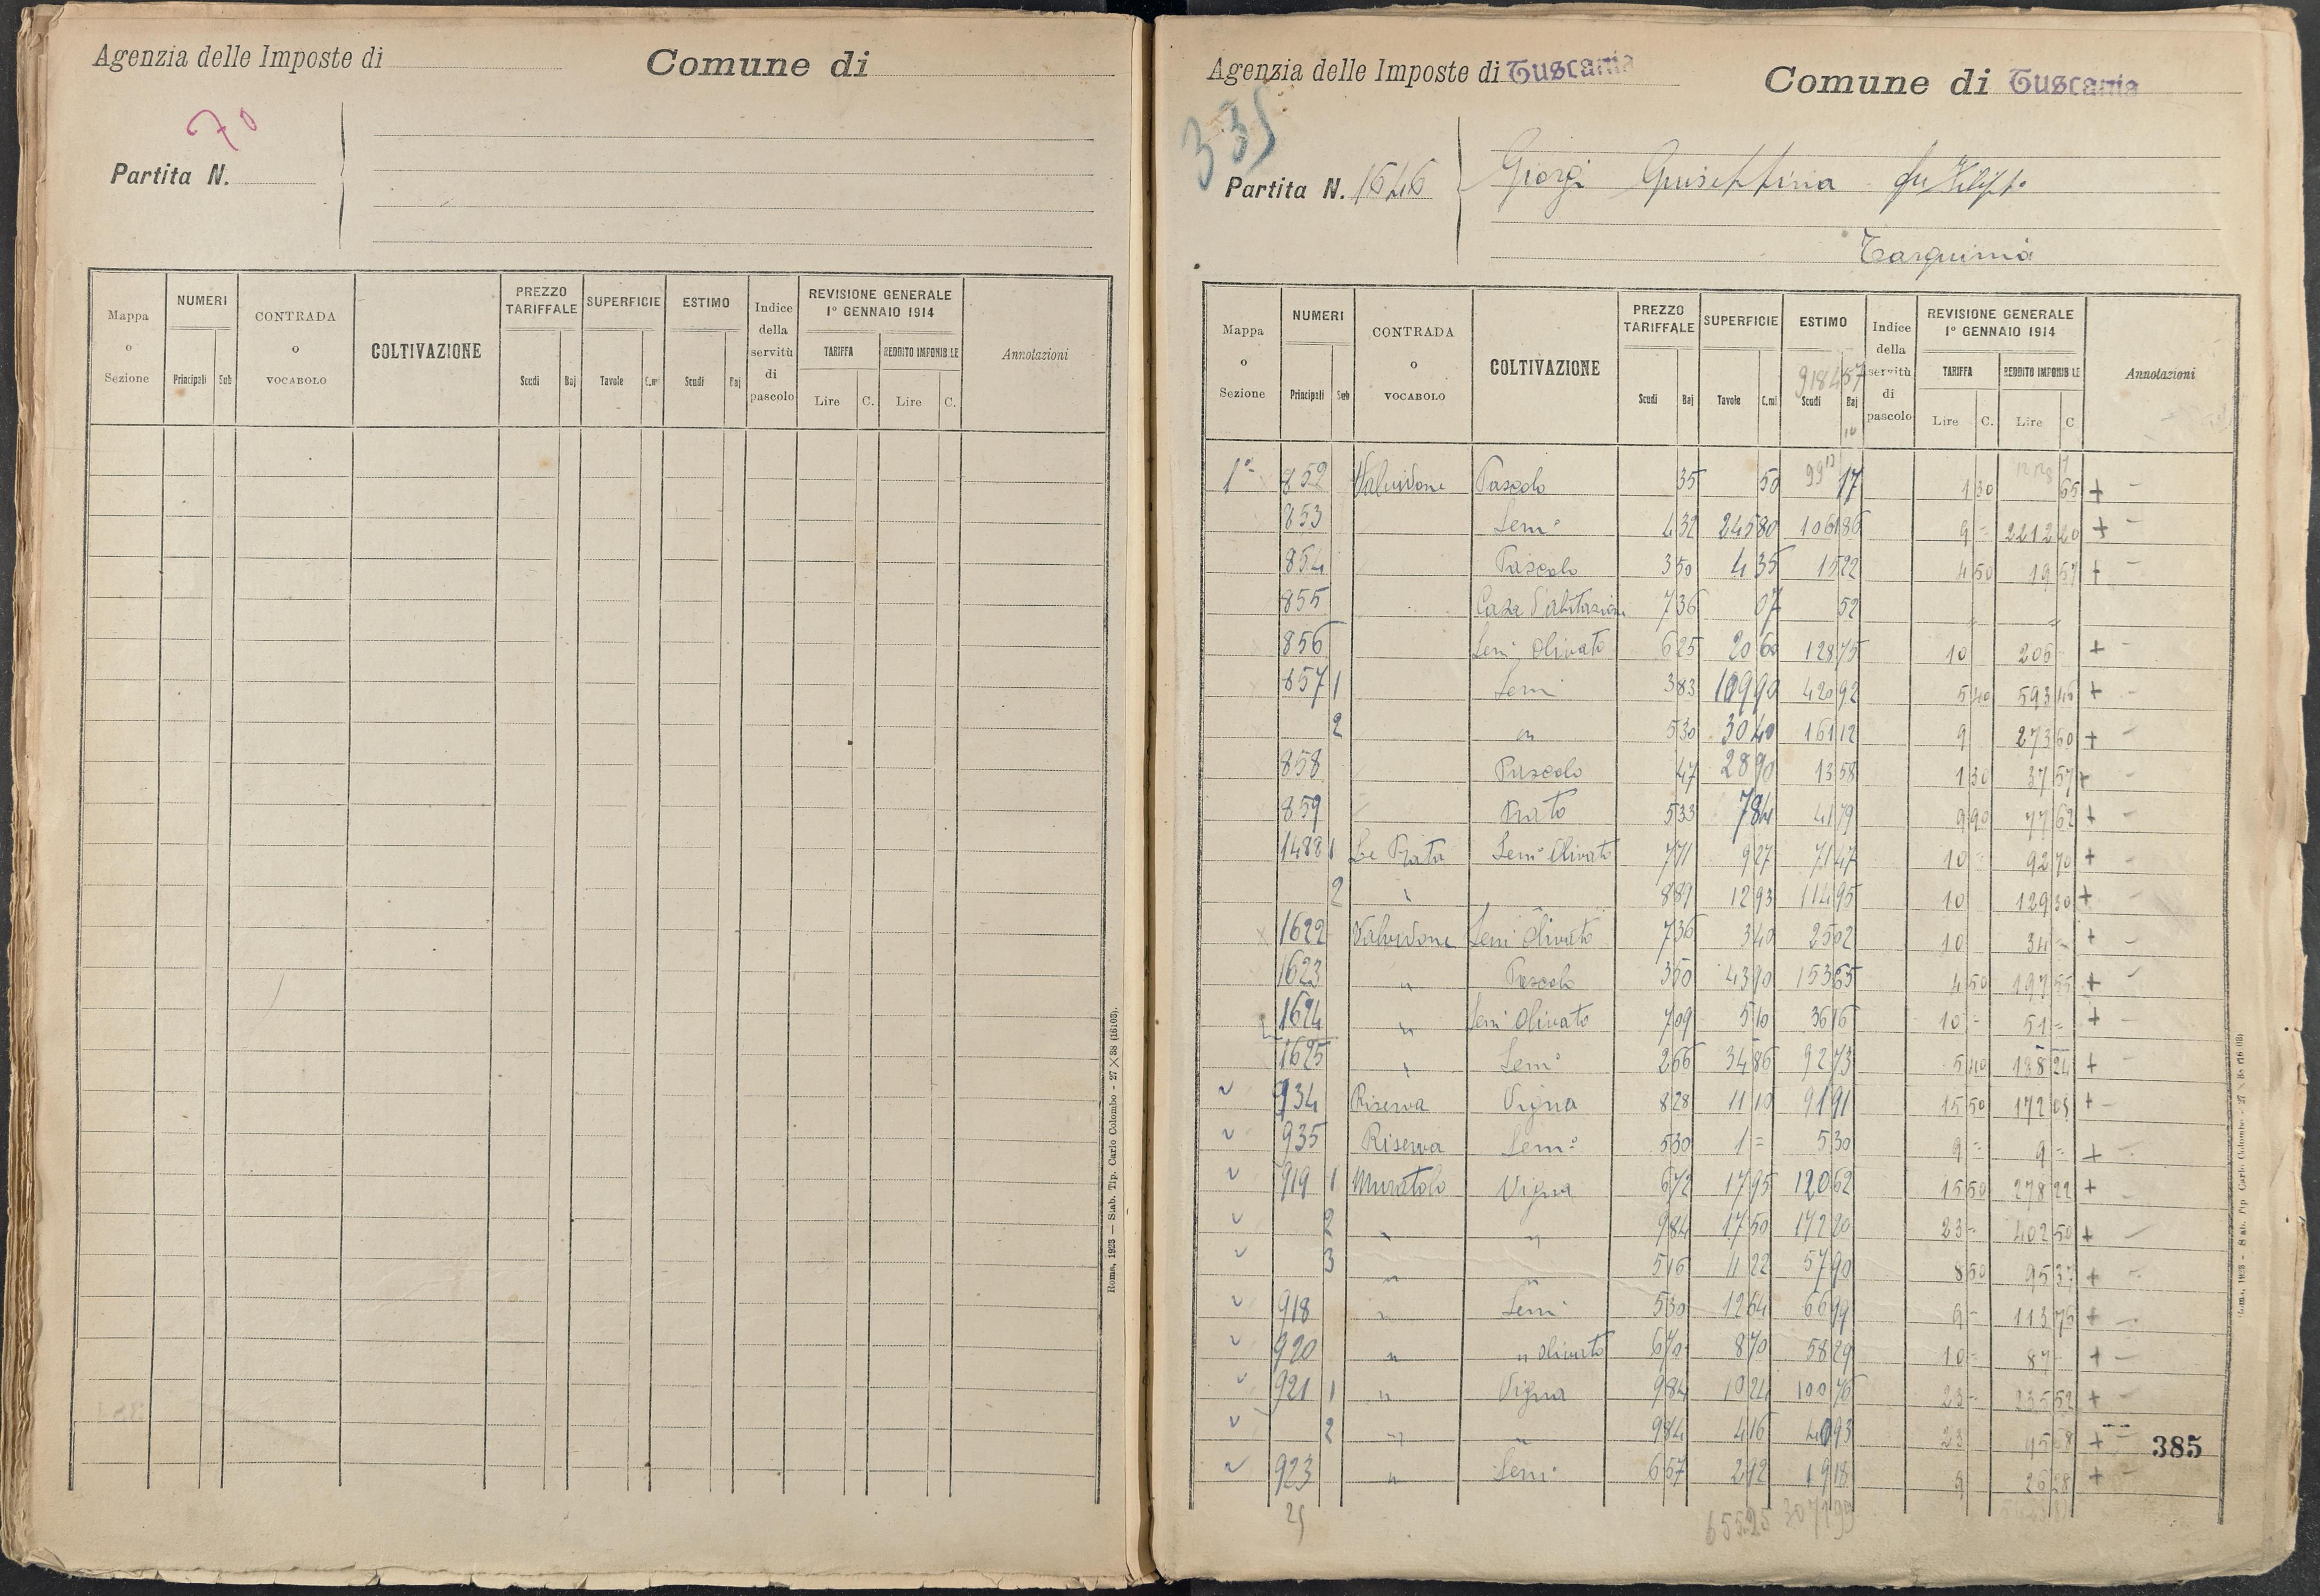 Agenzia delle Imposte di
Comune di
70
Partita N.
Mappa o Sezione
NUMERI
Principali Sub
CONTRADA o VOCABOLO
COLTIVAZIONE
PREZZO TARIFFALE
Scudi Baj
SUPERFICIE
Tavole C.mi
ESTIMO
Scudi Baj
Indice della servitù di pascolo
REVISIONE GENERALE 1° GENNAIO 1914
TARIFFA
Lire C.
REDDITO IMPONIBILE
Lire C.
Annotazioni
Roma, 1923 — Stab. Tip. Carlo Colombo - 27 × 38 (16103).
Agenzia delle Imposte di Tuscania
Comune di Tuscania
335
Partita N. 1646
Giorgi Giuseppina fu Filippo
Tarquinia
Mappa o Sezione
NUMERI
Principali Sub
CONTRADA o VOCABOLO
COLTIVAZIONE
PREZZO TARIFFALE
Scudi Baj
SUPERFICIE
Tavole C.mi
ESTIMO
918457
Scudi Baj
Indice della servitù di pascolo
REVISIONE GENERALE 1° GENNAIO 1914
TARIFFA
Lire C.
REDDITO IMPONIBILE
Lire C
Annotazioni
1° 852 Valvidone Pascolo 35 50 17 1 30 65 +
853 Sem° 4 32 245 80 1061 86 9 = 2212 20 +
854 Pascolo 3 50 4 35 15 22 4 50 19 57 +
855 Casa d'abitazione 7 36 07 52
856 Sem° Olivato 6 25 20 60 128 75 10 206 +
857 1 Sem° 3 83 109 90 420 92 5 40 593 46 +
2 " 5 30 30 40 161 12 9 273 60 +
858 Pascolo 47 28 90 13 58 1 30 37 57 +
859 Prato 5 33 7 84 41 79 9 90 77 62 +
1488 1 Le Prata Sem° Olivato 7 71 9 27 71 47 10 = 92 70 +
2 " 8 89 12 93 114 95 10 129 30 +
1622 Valvidone Sem° Olivato 7 36 3 40 25 02 10 34 = +
1623 " Pascolo 3 50 43 90 153 65 4 50 197 55 +
1624 " Sem° Olivato 7 09 5 10 36 16 10 = 51 = +
1625 " Sem° 2 66 34 86 92 73 5 40 188 24 +
934 Riserva Vigna 8 28 11 10 91 91 15 50 172 05 +
935 Riserva Sem° 5 30 1 = 5 30 9 = 9 = +
919 1 Muratolo Vigna 6 72 17 95 120 62 15 50 278 22 +
2 " " 9 84 17 50 172 20 23 = 402 50 +
3 " " 5 16 11 22 57 90 8 50 95 37 +
918 " Sem° 5 30 12 64 66 99 9 = 113 76 +
920 " " olivato 6 70 8 70 58 29 10 = 87 +
921 1 " Vigna 9 84 10 24 100 76 23 = 235 52 +
2 " " 9 84 4 16 40 93 23 95 68 +
923 " Sem° 6 57 2 92 19 18 9 26 28 +
385
25 655 25 3071 99